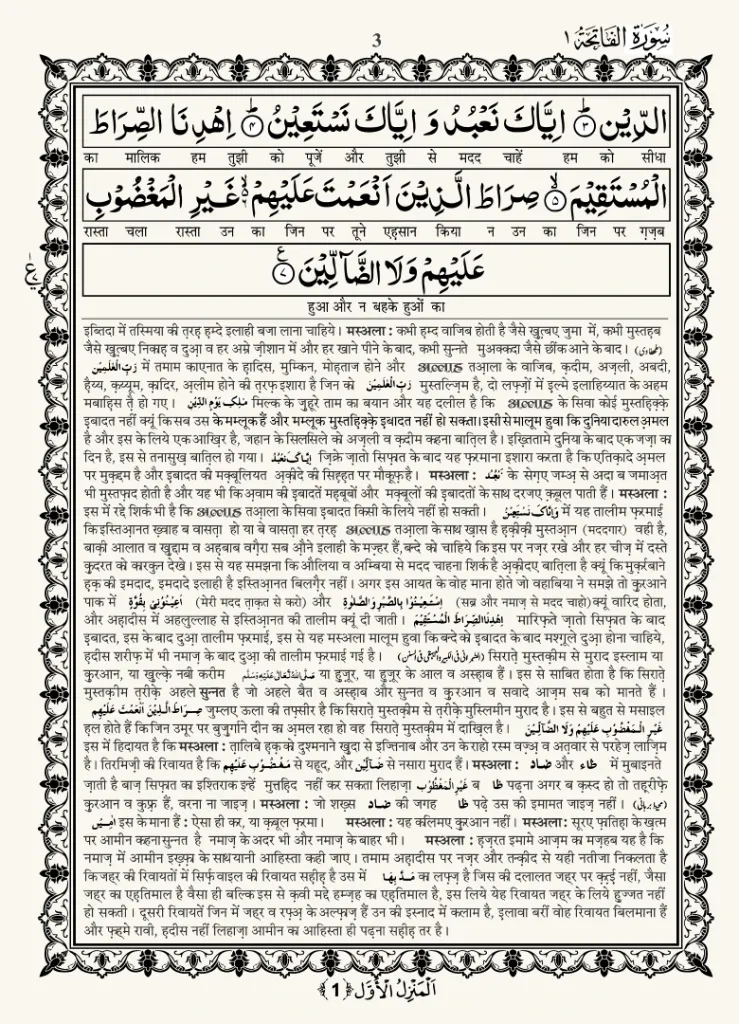 3
سُوْرَةُ الْفَاتِحَةِ ١
الدِّيْنِ ۞ اِيَّاكَ نَعْبُدُ وَ اِيَّاكَ نَسْتَعِيْنُ ۞ اِهْدِنَا الصِّرَاطَ
का मालिक हम तुझी को पूजें और तुझी से मदद चाहें हम को सीधा
الْمُسْتَقِيْمَ ۞ صِرَاطَ الَّذِيْنَ اَنْعَمْتَ عَلَيْهِمْ غَيْرِ الْمَغْضُوْبِ
रास्ता चला रास्ता उन का जिन पर तूने एहसान किया न उन का जिन पर ग़ज़ब
عَلَيْهِمْ وَلَا الضَّآلِّيْنَ ۞
हुआ और न बहके हुओं का
इब्तिदा में तस्मिया की तरह हम्दे इलाही बजा लाना चाहिये। मस्अला : कभी हम्द वाजिब होती है जैसे ख़ुत्बए जुमा में, कभी मुस्तहब
जैसे ख़ुत्बए निकाह व दुआ व हर अम्रे ज़ीशान में और हर खाने पीने के बाद, कभी सुन्नते मुअक्कदा जैसे छींक आने के बाद। (طحاوی)
رَبِّ الْعٰلَمِيْنَ में तमाम काएनात के हादिस, मुम्किन, मोहताज होने और तआला के वाजिब, क़दीम, अज़ली, अबदी,
हैय्य, क़य्यूम, क़ादिर, अलीम होने की तरफ़ इशारा है जिन को رَبِّ الْعٰلَمِيْنَ मुस्तल्ज़िम है, दो लफ़्ज़ों में इल्मे इलाहिय्यात के अहम
मबाहिस ते हो गए। مٰلِكِ يَوْمِ الدِّيْنِ मिल्क के ज़ुहूरे ताम का बयान और यह दलील है कि के सिवा कोई मुस्तहिक़्के
इबादत नहीं क्यूं कि सब उस के मम्लूक हैं और मम्लूक मुस्तहिक़्के इबादत नहीं हो सकता। इसी से मालूम हुवा कि दुनिया दारुल अमल
है और इस के लिये एक आख़िर है, जहान के सिलसिले को अज़ली व क़दीम कहना बातिल है। इख़्तितामे दुनिया के बाद एक जज़ा का
दिन है, इस से तनासुख़ बातिल हो गया। اِيَّاكَ نَعْبُدُ ज़िक्रे ज़ातो सिफ़ात के बाद यह फ़रमाना इशारा करता है कि एतिक़ादे अमल
पर मुक़द्दम है और इबादत की मक़्बूलियत अक़ीदे की सिह्हत पर मौक़ूफ़ है। मस्अला : نَعْبُدُ के सेग़ए जम्अ़ से अदा ब जमाअत
भी मुस्तफ़ाद होती है और यह भी कि अवाम की इबादतें महबूबों और मक़्बूलों की इबादतों के साथ दरजए क़बूल पाती हैं। मस्अला :
इस में रद्दे शिर्क भी है कि तआला के सिवा इबादत किसी के लिये नहीं हो सकती। وَاِيَّاكَ نَسْتَعِيْنُ में यह तालीम फ़रमाई
कि इस्तिआनत ख़्वाह ब वास्ता हो या बे वास्ता हर तरह तआला के साथ ख़ास है हक़ीक़ी मुस्तआन (मददगार) वही है,
बाक़ी आलात व ख़ुद्दाम व अहबाब वग़ैरा सब औने इलाही के मज़्हर हैं, बन्दे को चाहिये कि इस पर नज़र रखे और हर चीज़ में दस्ते
क़ुदरत को कारकुन देखे। इस से यह समझना कि औलिया व अम्बिया से मदद चाहना शिर्क है अक़ीदए बातिला है क्यूं कि मुक़र्रबाने
हक़ की इमदाद, इमदादे इलाही है इस्तिआनत बिलग़ैर नहीं। अगर इस आयत के वोह माना होते जो वहाबिया ने समझे तो क़ुरआने
पाक में اَعِيْنُوْنِىْ بِقُوَّةٍ (मेरी मदद ताक़त से करो) और اِسْتَعِيْنُوْا بِالصَّبْرِ وَالصَّلٰوةِ (सब्र और नमाज़ से मदद चाहो) क्यूं वारिद होता,
और अहादीस में अहलुल्लाह से इस्तिआनत की तालीम क्यूं दी जाती। اِهْدِنَا الصِّرَاطَ الْمُسْتَقِيْمَ मारिफ़ते ज़ातो सिफ़ात के बाद
इबादत, इस के बाद दुआ तालीम फ़रमाई, इस से यह मस्अला मालूम हुवा कि बन्दे को इबादत के बाद मश्ग़ूले दुआ होना चाहिये,
हदीस शरीफ़ में भी नमाज़ के बाद दुआ की तालीम फ़रमाई गई है। सिराते मुस्तक़ीम से मुराद इस्लाम या
क़ुरआन, या ख़ुल्क़े नबी करीम صَلَّى اللهُ تَعَالٰى عَلَيْهِ وَسَلَّم या हुज़ूर, या हुज़ूर के आल व अस्हाब हैं। इस से साबित होता है कि सिराते
मुस्तक़ीम तरीक़े अहले सुन्नत है जो अहले बैत व अस्हाब और सुन्नत व क़ुरआन व सवादे आज़म सब को मानते हैं।
صِرَاطَ الَّذِيْنَ اَنْعَمْتَ عَلَيْهِمْ जुम्लए ऊला की तफ़्सीर है कि सिराते मुस्तक़ीम से तरीक़े मुस्लिमीन मुराद है। इस से बहुत से मसाइल
हल होते हैं कि जिन उमूर पर बुज़ुर्गाने दीन का अमल रहा हो वह सिराते मुस्तक़ीम में दाख़िल है। غَيْرِ الْمَغْضُوْبِ عَلَيْهِمْ وَلَا الضَّآلِّيْنَ
इस में हिदायत है कि मस्अला : तालिबे हक़ को दुश्मनाने ख़ुदा से इज्तिनाब और उन के राहो रस्म वज़्अ़ व अत्वार से परहेज़ लाज़िम
है। तिरमिज़ी की रिवायत है कि مَغْضُوْبِ عَلَيْهِمْ से यहूद, और ضَآلِّيْن से नसारा मुराद हैं। मस्अला : ضاد और ظاء में मुबाइनते
ज़ाती है बाज़ सिफ़ात का इश्तिराक इन्हें मुत्तहिद नहीं कर सकता लिहाज़ा غَيْرِ الْمَغْظُوْبِ ब ظا पढ़ना अगर ब क़स्द हो तो तहरीफ़े
क़ुरआन व कुफ़्र है, वरना ना जाइज़। मस्अला : जो शख़्स ضاد की जगह ظا पढ़े उस की इमामत जाइज़ नहीं। (محیط برہانی)
اٰمِيْن इस के माना हैं : ऐसा ही कर, या क़बूल फ़रमा। मस्अला : यह कलिमए क़ुरआन नहीं। मस्अला : सूरए फ़ातिहा के ख़त्म
पर आमीन कहना सुन्नत है नमाज़ के अंदर भी और नमाज़ के बाहर भी। मस्अला : हज़रत इमामे आज़म का मज़हब यह है कि
नमाज़ में आमीन इख़्फ़ा के साथ यानी आहिस्ता कही जाए। तमाम अहादीस पर नज़र और तन्क़ीद से यही नतीजा निकलता है
कि जहर की रिवायतों में सिर्फ़ वाइल की रिवायत सहीह है उस में مَدَّ بِهَا का लफ़्ज़ है जिस की दलालत जहर पर क़तई नहीं, जैसा
जहर का एहतिमाल है वैसा ही बल्कि इस से क़वी मद्दे हम्ज़ह का एहतिमाल है, इस लिये येह रिवायत जहर के लिये हुज्जत नहीं
हो सकती। दूसरी रिवायतें जिन में जहर व रफ़्अ़ के अल्फ़ाज़ हैं उन की इस्नाद में कलाम है, इलावा बरीं वोह रिवायत बिलमाना हैं
और फ़हमे रावी, हदीस नहीं लिहाज़ा आमीन का आहिस्ता ही पढ़ना सहीह तर है।
اَلْمَنْزِلُ الْاَوَّل ﴿1﴾